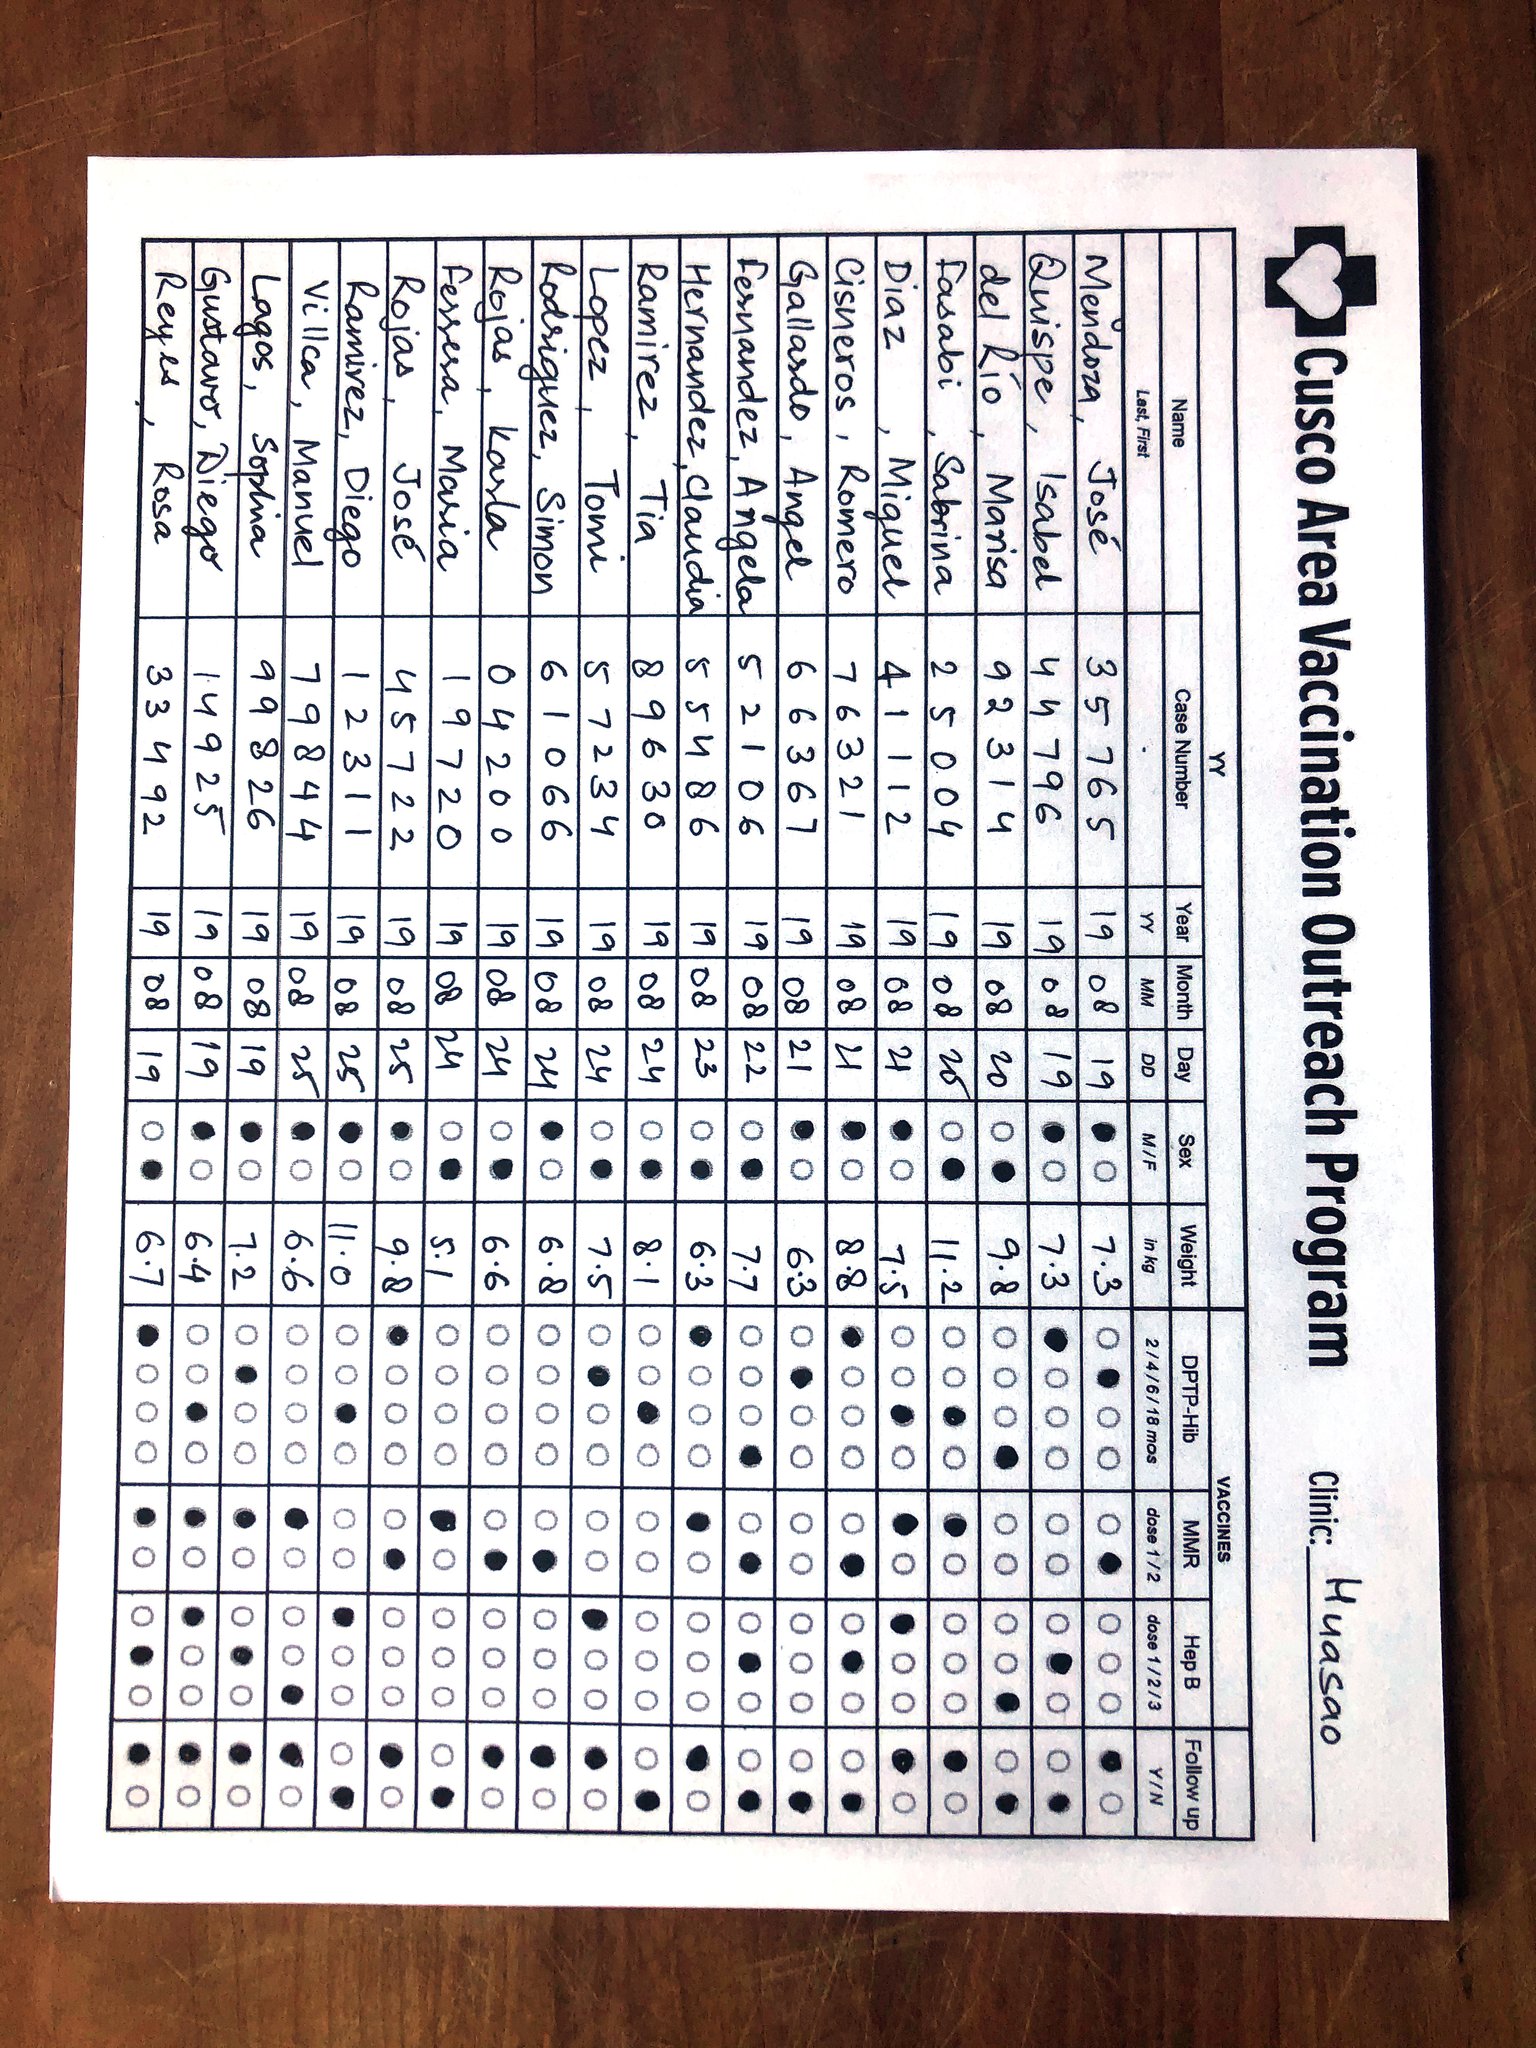 Cusco Area Vaccination Outreach Program Clinic: Huasao
YY VACCINES
Name Case Number Year Month Day Sex Weight DPTP-Hib MMR Hep B Follow up
Last, First YY MM DD M/F in kg 2/4/6/18 mos dose 1/2 dose 1/2/3 Y/N
Mendoza, José 35765 19 08 19 7.3
Quispe, Isabel 44796 19 08 19 7.3
del Río, Marisa 92314 19 08 20 9.8
Fasabi, Sabrina 25004 19 08 20 11.2
Diaz, Miguel 41112 19 08 21 7.5
Cisneros, Romero 76321 19 08 21 8.8
Gallardo, Angel 66367 19 08 21 6.3
Fernandez, Angela 52106 19 08 22 7.7
Hernandez, Claudia 55486 19 08 23 6.3
Ramirez, Tia 89630 19 08 24 8.1
Lopez, Tomi 57234 19 08 24 7.5
Rodriguez, Simon 61066 19 08 24 6.8
Rojas, Karla 04200 19 08 24 6.6
Ferrera, Maria 19720 19 08 24 5.1
Rojas, José 45722 19 08 25 9.8
Ramirez, Diego 12311 19 08 25 11.0
Villca, Manuel 79844 19 08 25 6.6
Lagos, Sophia 99826 19 08 19 7.2
Gustavo, Diego 14925 19 08 19 6.4
Reyes, Rosa 33492 19 08 19 6.7